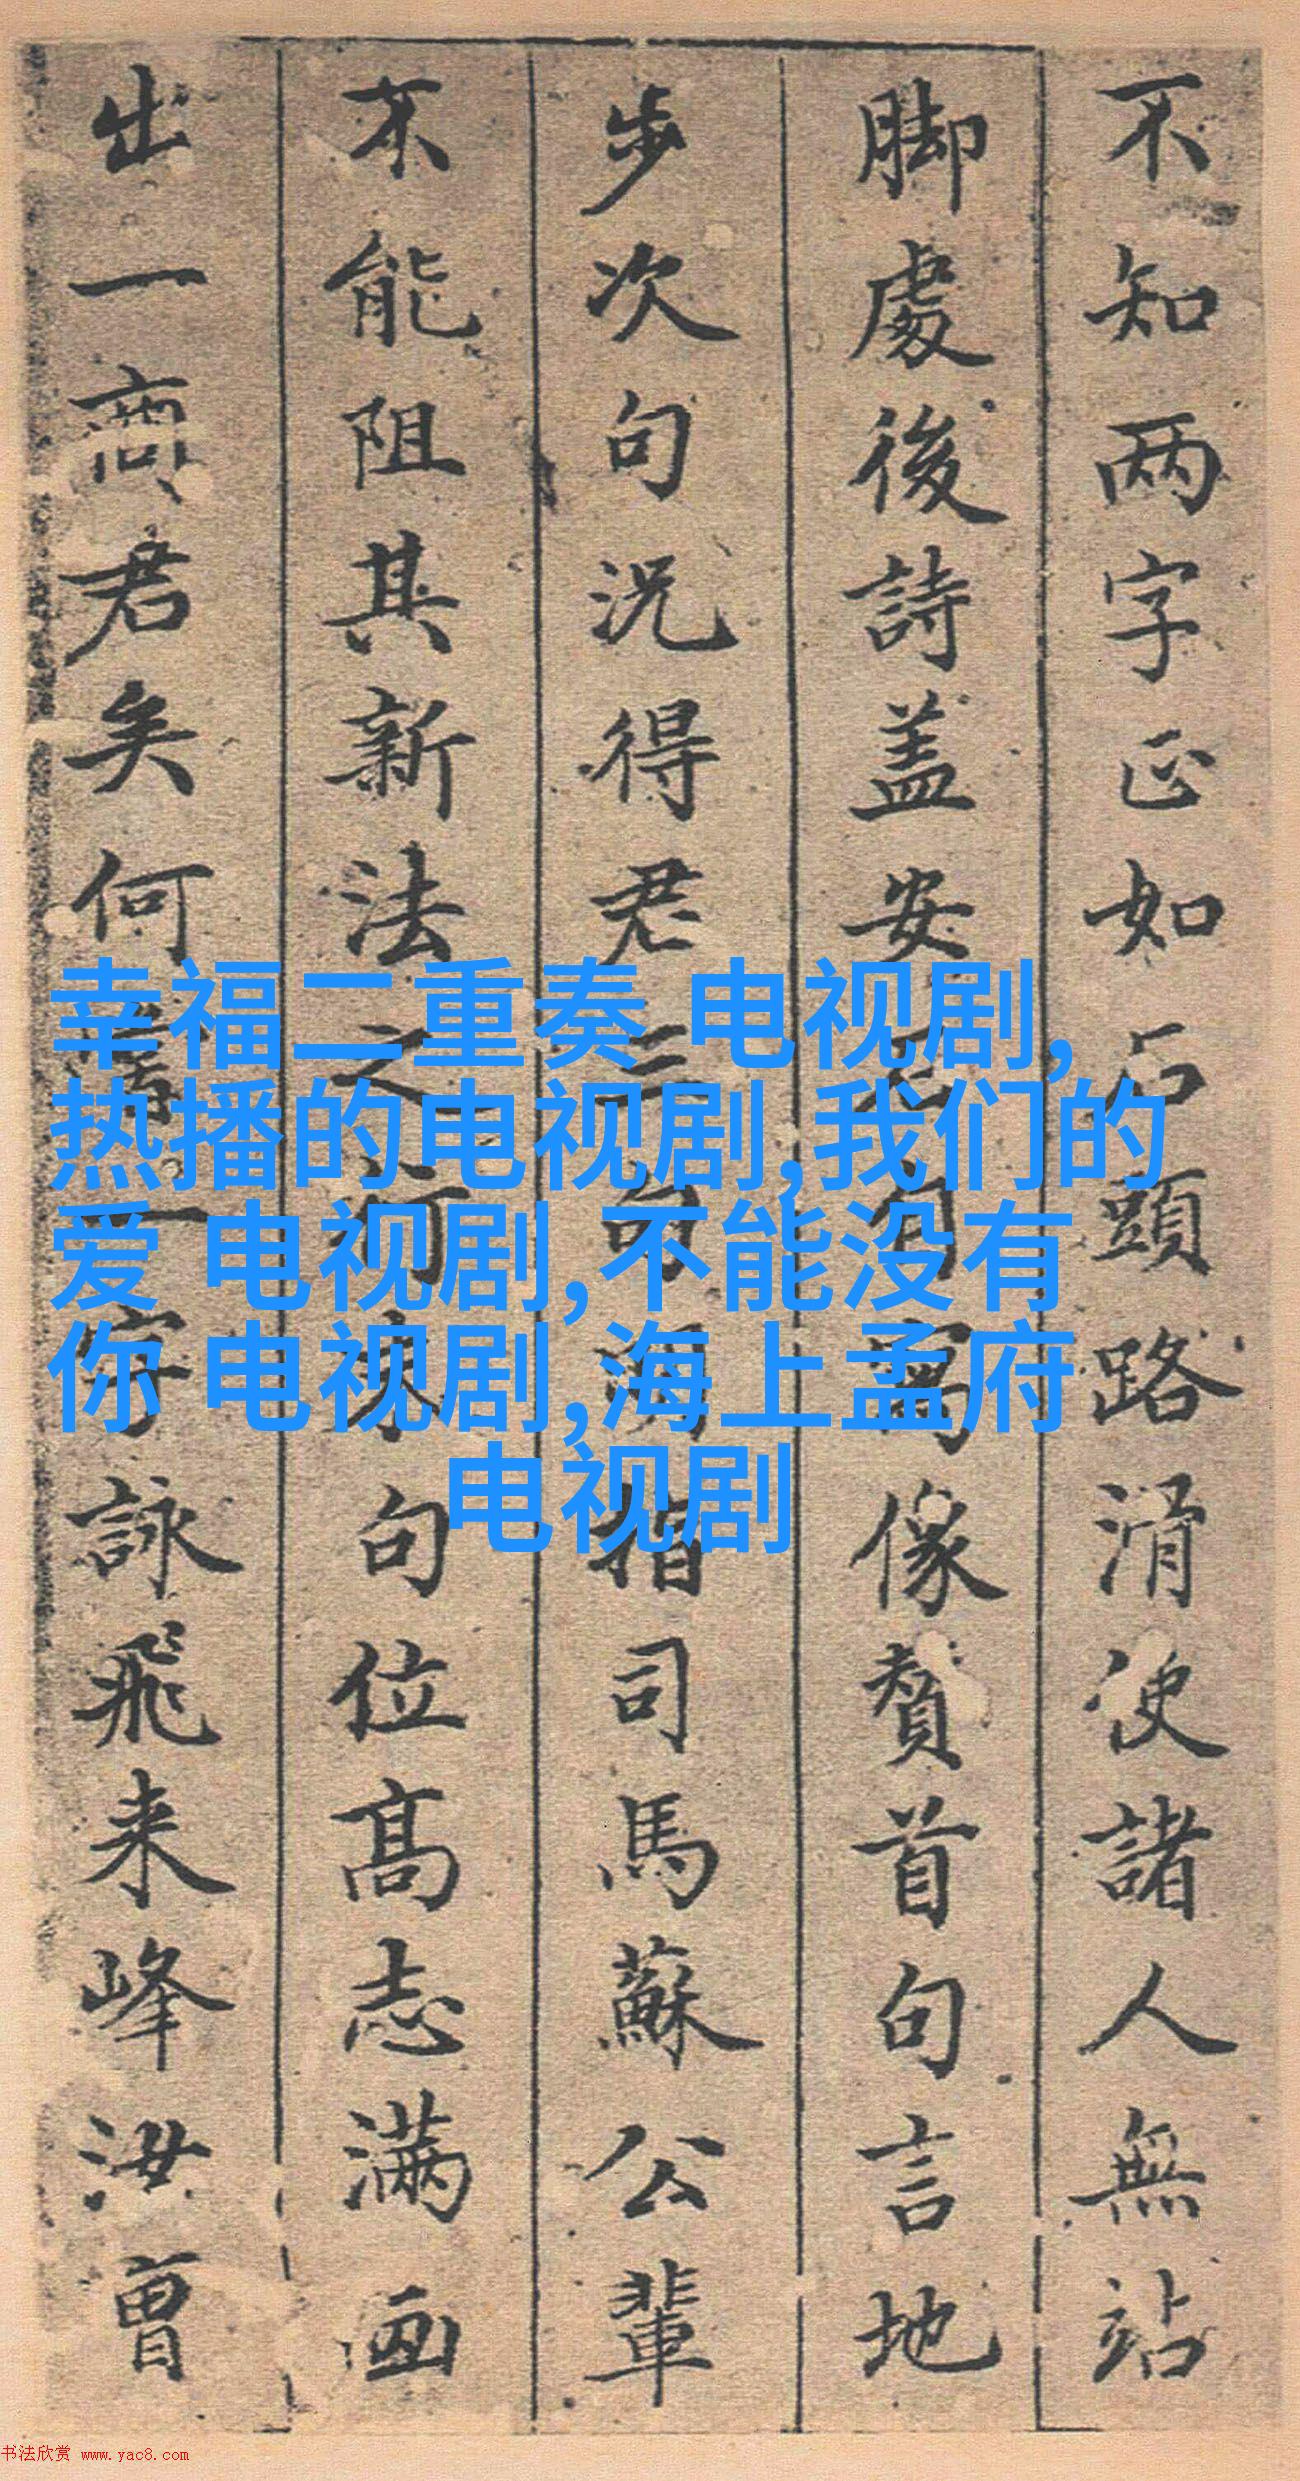 不知两字正如石頭路滑使諸人無站
脚處後詩盖安石自寫像賛首句言地
步次句況得君三句指司馬蘇公輩
不能阻其新法之行末句位高志满画
出一商君矣何字詠飛来峰汝曾
幸福二重奏 电视剧,
热播的电视剧,我们的
爱 电视剧,不能没有
你 电视剧,海上孟府
电视剧
书法欣赏 www.yac8.com